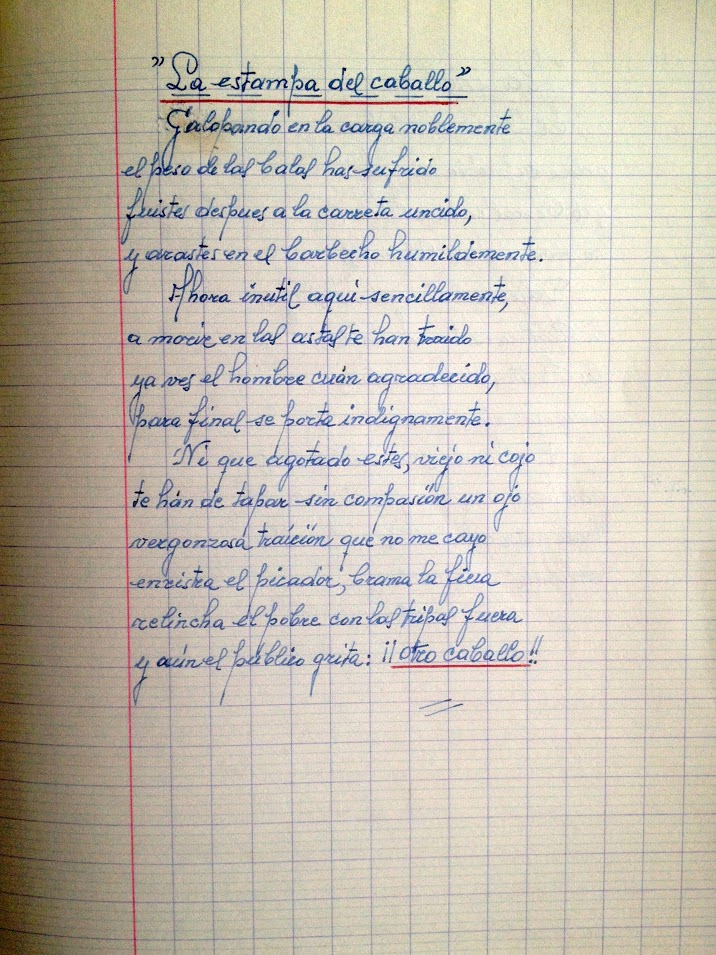 "La estampa del caballo"
Galopando en la carga noblemente
el peso de las balas has sufrido
fuistes despues a la carreta uncido,
y arastes en el barbecho humildemente.
Ahora inutil aqui sencillamente,
a morir en las astas te han traido
ya ves el hombre cuán agradecido,
para final se porta indignamente.
Ni que agotado estes, viejo ni cojo
te hán de tapar sin compasión un ojo
vergonzosa traición que no me cayo
enristra el picador, brama la fiera
relincha el pobre con las tripas fuera
y aún el público grita: ¡¡otro caballo!!